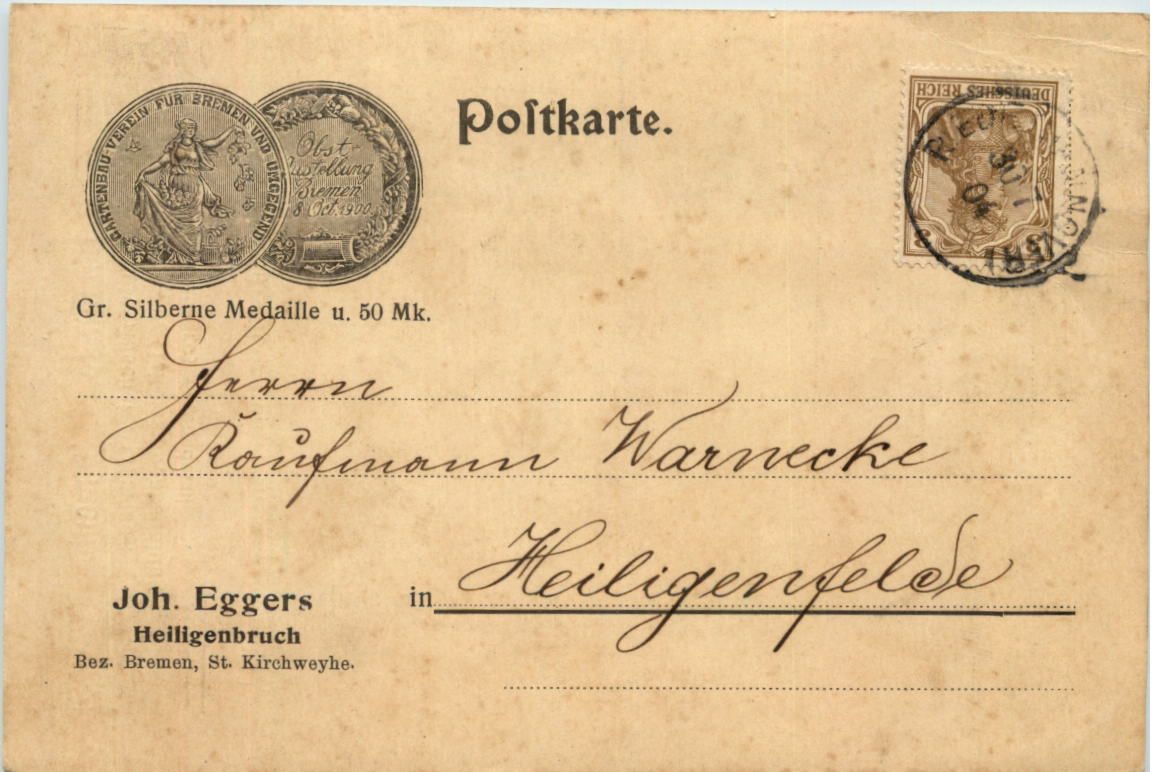 GARTENBAU-VEREIN FÜR BREMEN UND UMGEGEND
Obst-
Ausstellung
Bremen
8 Oct. 1900.
Postkarte.
DEUTSCHES REICH
3
HANNOVER
30 1
04
Gr. Silberne Medaille u. 50 Mk.
Herrn
Kaufmann Warnecke
in Heiligenfelde
Joh. Eggers
Heiligenbruch
Bez. Bremen, St. Kirchweyhe.